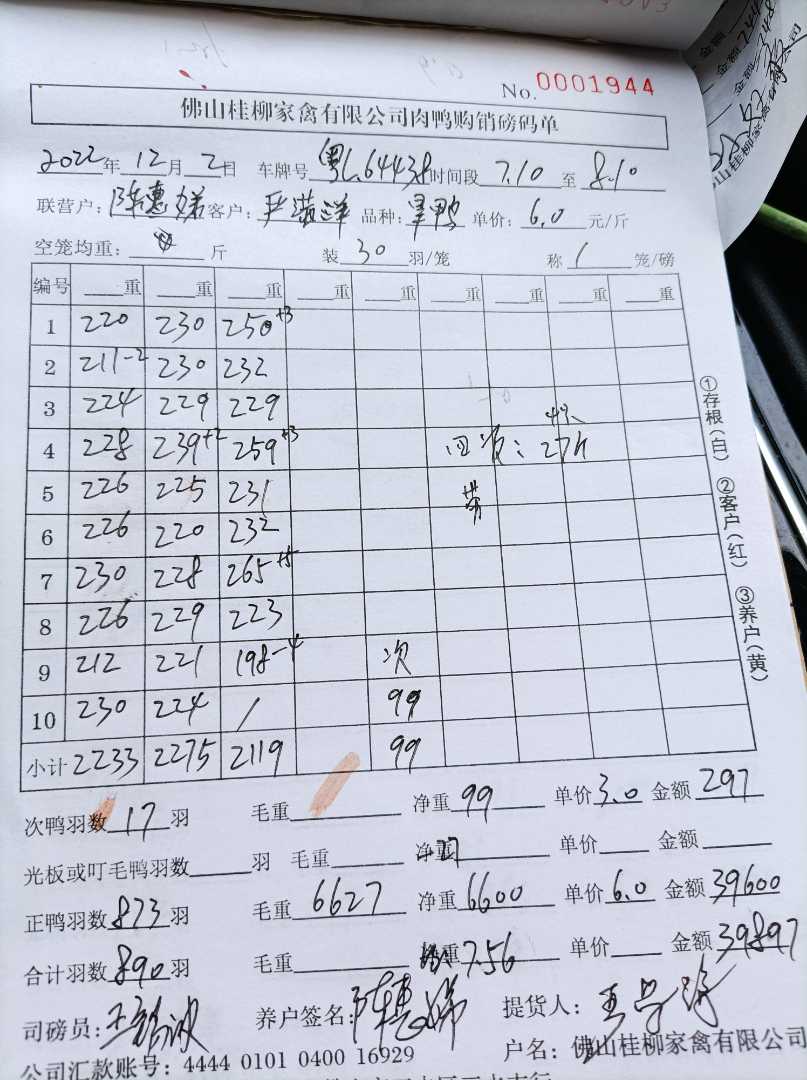 No. 0001944
佛山桂柳家禽有限公司肉鸭购销磅码单
2022年 12月 2日 车牌号 粤L.64438 时间段 7.10 至 8.10
联营户：陈惠娣 客户：严满洋 品种： 单价：6.0 元/斤
空笼均重： 斤 装 30 羽/笼 称 1 笼/磅
编号 重 重 重 重 重 重 重 重 重
1 220 230 250+3
2 211-2 230 232
3 224 229 229
4 228 239+2 259+3 27斤
5 226 225 231
6 226 220 232
7 230 228 265+5
8 226 229 223
9 212 221 198-4 次
10 230 224 / 99
小计 2233 2275 2119 99
①存根(白) ②客户(红) ③养户(黄)
次鸭羽数 17 羽 毛重 净重 99 单价 3.0 金额 297
光板或叮毛鸭羽数 羽 毛重 净重 单价 金额
正鸭羽数 873 羽 毛重 6627 净重 6600 单价 6.0 金额 39600
合计羽数 890 羽 毛重 重 7.56 单价 金额 39897
司磅员： 养户签名：陈惠娣 提货人：
公司汇款账号：4444 0101 0400 16929 户名：佛山桂柳家禽有限公司